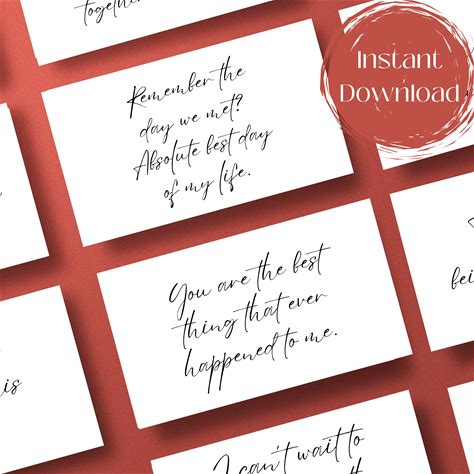 together
Instant
Download
Remember the
day we met?
Absolute best day
of my life.
You are the best
thing that ever
happened to me.
bei
is
I can't wait to